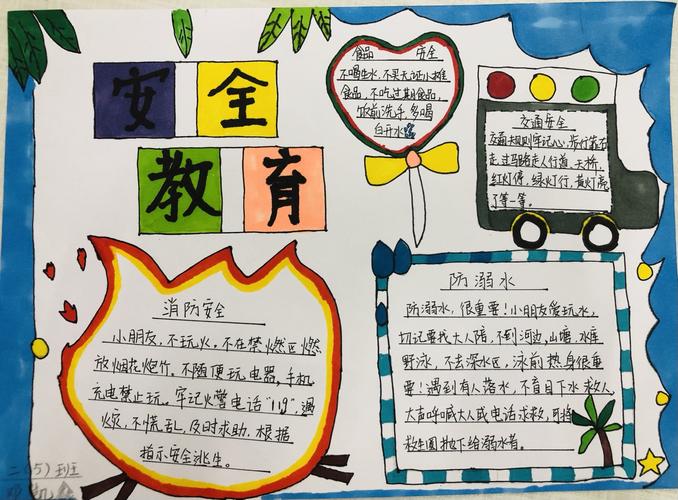 安全
教育
食品 安全
不喝生水,不买无证小摊
食品,不吃过期食品,
饭前洗手,多喝
白开水
交通安全
交通规则牢记心,步行靠右
走,过马路走人行道,天桥,
红灯停,绿灯行,黄灯亮
了等一等。
消防安全
小朋友,不玩火。不在禁燃区燃
放烟花炮竹。不随便玩电器,手机
充电禁止玩。牢记火警电话"119",遇
火灾,不慌乱,及时求助,根据
指示安全逃生。
防溺水
防溺水,很重要!小朋友爱玩水,
切记要找大人陪,不到河边,山塘,水库
野泳,不去深水区;泳前热身很重
要!遇到有人落水,不盲目下水救人,
大声呼喊大人或电话求救,可将
救生圈抛下给溺水者。
二(5)班